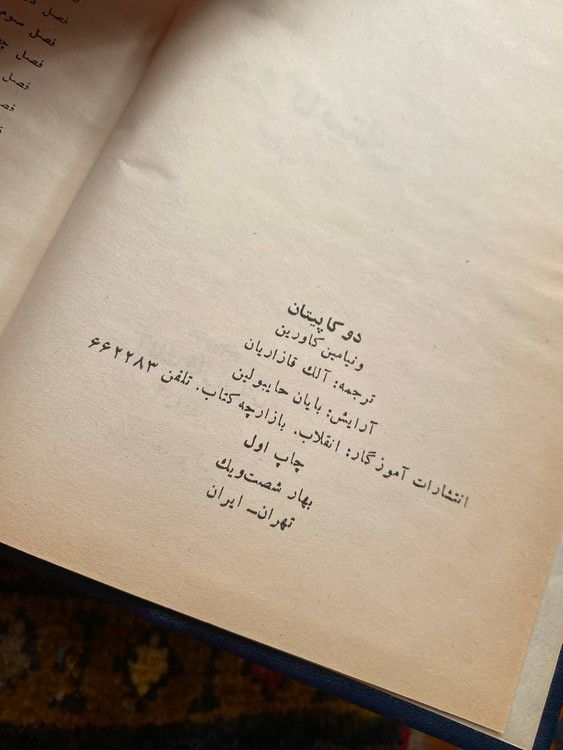 فصل سوم
فصل
فصل
دو کاپیتان
ونیامین کاورین
ترجمه: آلك قازاریان
آرایش: بایان حایبولین
انتشارات آموزگار: انقلاب. بازارچه کتاب. تلفن ۶۶۲۲۸۳
چاپ اول
بهار شصت‌ویك
تهران– ایران